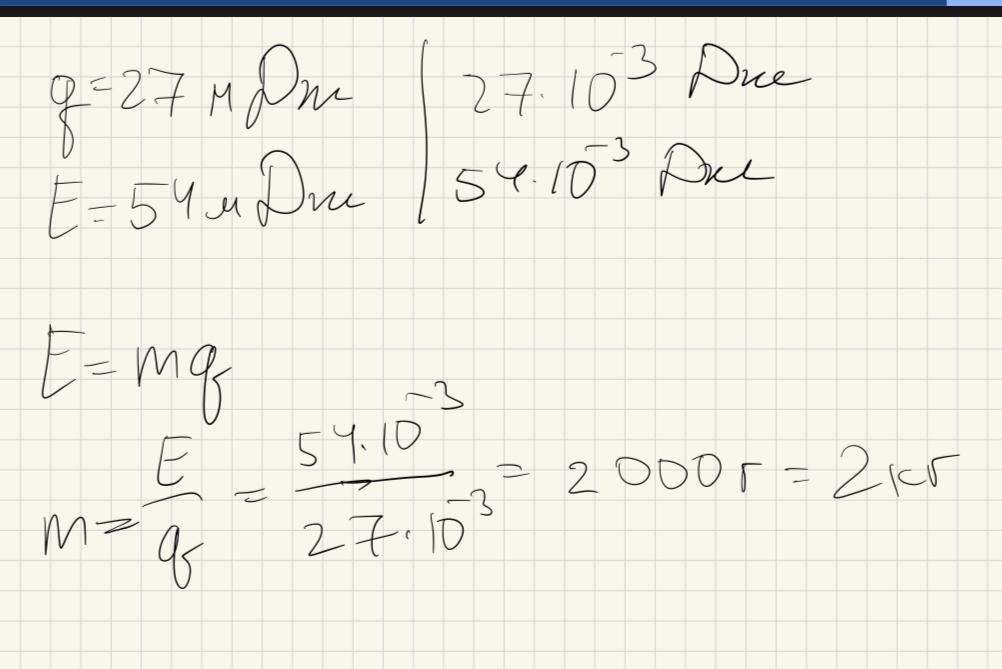 q=27 мДж | 27·10⁻³ Дже
E=54 мДж | 54·10⁻³ Дж
E=mq
m=E/q = 54·10⁻³/27·10⁻³ = 2000г = 2кг